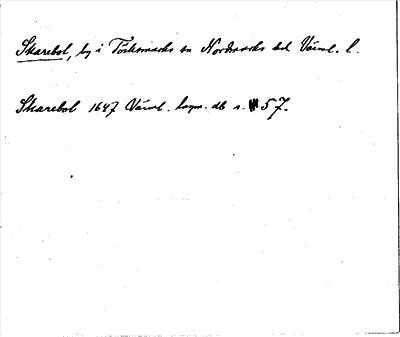 Skarebol, by i Töcksmarks sn Nordmarks hd Värml. l.
Skarebol 1647 Värml. komm. db s. 57.